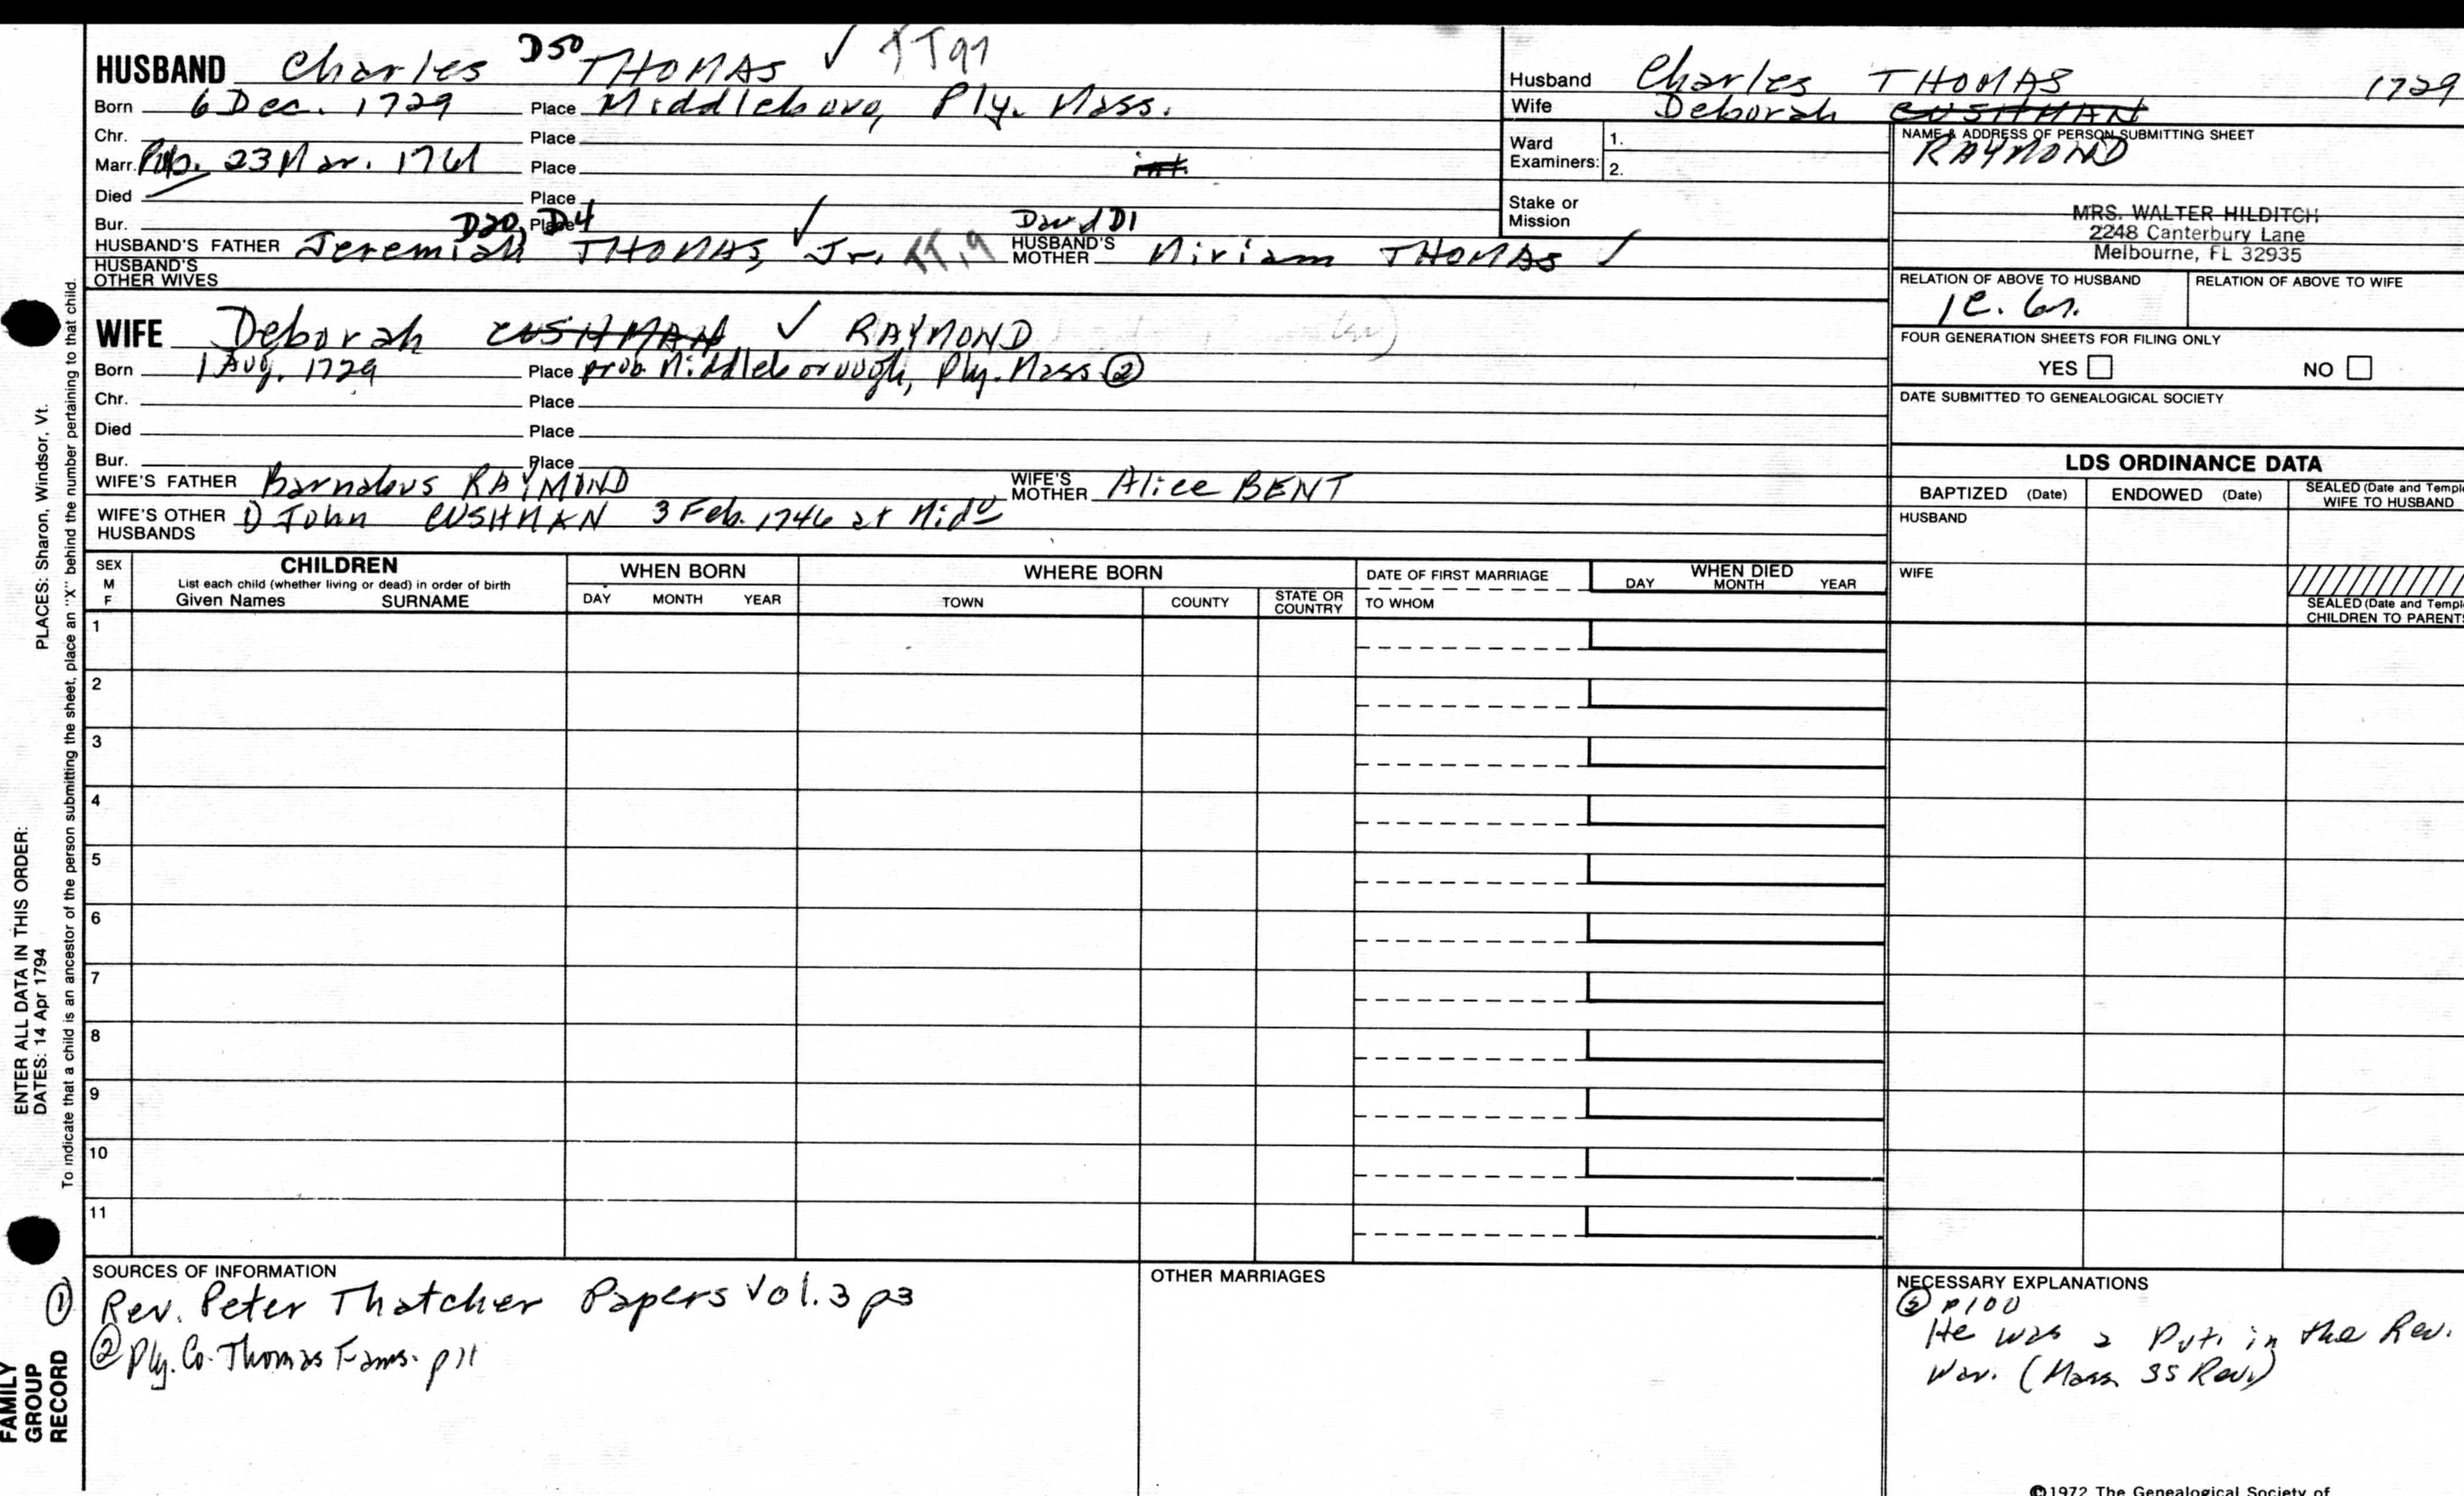 HUSBAND Charles D50 THOMAS ✓ TT97
Born 6 Dec. 1729 Place Middleboro, Ply. Mass.
Chr. Place
Marr. Pub. 23 Mar. 1761 Place int.
Died Place
Bur. Place
D20, D4 ✓ David D1
HUSBAND'S FATHER Jeremiah THOMAS, Jr. TT,9 HUSBAND'S MOTHER Miriam THOMAS ✓
HUSBAND'S OTHER WIVES
WIFE Deborah CUSHMAN ✓ RAYMOND
Born 1 Aug. 1729 Place prob Middleborough, Ply. Mass ②
Chr. Place
Died Place
Bur. Place
WIFE'S FATHER Barnabus RAYMOND WIFE'S MOTHER Alice BENT
WIFE'S OTHER HUSBANDS 1) John CUSHMAN 3 Feb. 1746 at Mido
Husband Charles THOMAS 1729
Wife Deborah CUSHMAN
RAYMOND
Ward Examiners: 1.
2.
Stake or Mission
NAME & ADDRESS OF PERSON SUBMITTING SHEET
MRS. WALTER HILDITCH
2248 Canterbury Lane
Melbourne, FL 32935
RELATION OF ABOVE TO HUSBAND RELATION OF ABOVE TO WIFE
FOUR GENERATION SHEETS FOR FILING ONLY
YES NO
DATE SUBMITTED TO GENEALOGICAL SOCIETY
LDS ORDINANCE DATA
BAPTIZED (Date) ENDOWED (Date) SEALED (Date and Temple
WIFE TO HUSBAND
HUSBAND
WIFE
SEALED (Date and Temple
CHILDREN TO PARENTS
SEX
M
F
CHILDREN
List each child (whether living or dead) in order of birth
Given Names SURNAME
WHEN BORN
DAY MONTH YEAR
WHERE BORN
TOWN COUNTY STATE OR COUNTRY
DATE OF FIRST MARRIAGE
TO WHOM
WHEN DIED
DAY MONTH YEAR
1
2
3
4
5
6
7
8
9
10
11
SOURCES OF INFORMATION
① Rev. Peter Thatcher Papers Vol. 3 p3
② Ply. Co. Thomas Fams. p11
OTHER MARRIAGES
NECESSARY EXPLANATIONS
p100
He was a Pvt. in the Rev.
War. (Mass SS Rev.)
©1972 The Genealogical Society of
PLACES: Sharon, Windsor, Vt.
To indicate that a child is an ancestor of the person submitting the sheet, place an "X" behind the number pertaining to that child.
ENTER ALL DATA IN THIS ORDER:
DATES: 14 Apr 1794
FAMILY
GROUP
RECORD